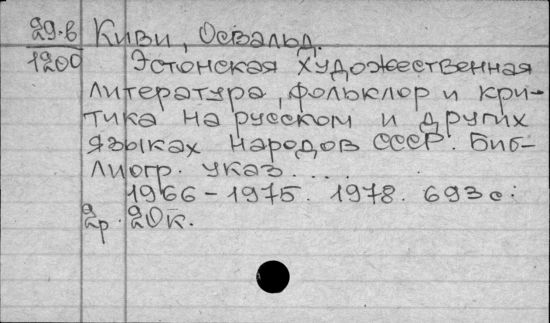 29.в Киви, Освальд.
1200 Эстонская художественная
литература, фольклор и кри-
тика на русском и других
языках народов СССР. Биб-
лиогр. указ. ...
1966-1975. 1978. 693 с.
2р. 20к.